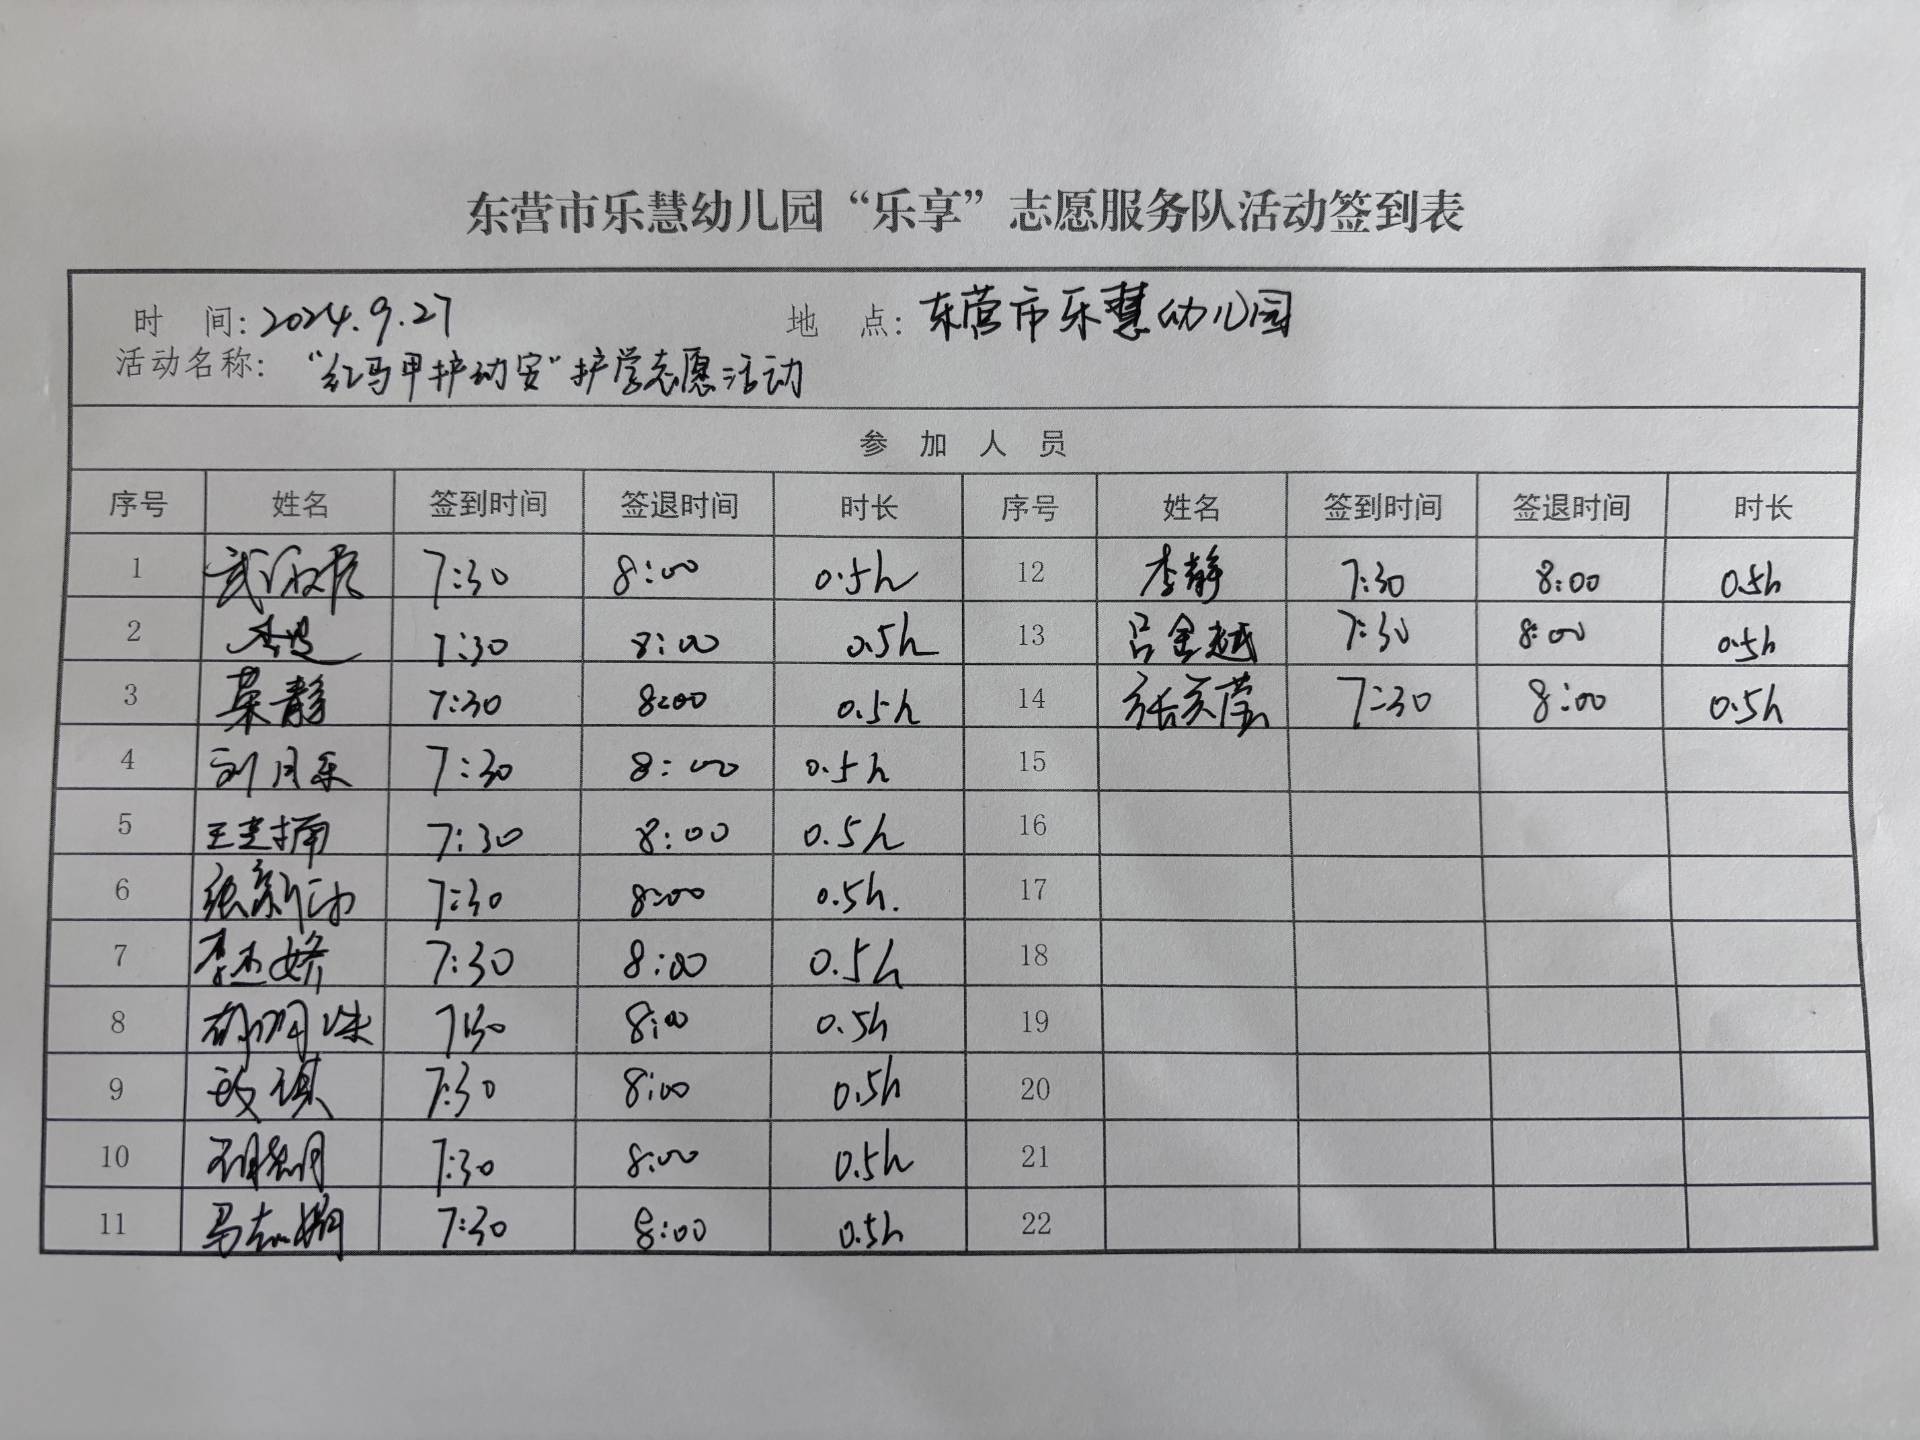 东营市乐慧幼儿园“乐享”志愿服务队活动签到表
时 间: 2024.9.27 地 点: 东营市乐慧幼儿园
活动名称: “红马甲护幼安”护学志愿活动
参 加 人 员
序号 姓名 签到时间 签退时间 时长 序号 姓名 签到时间 签退时间 时长
1 7:30 8:00 0.5h 12 李静 7:30 8:00 0.5h
2 7:30 8:00 0.5h 13 吕金越 7:30 8:00 0.5h
3 荣静 7:30 8:00 0.5h 14 7:30 8:00 0.5h
4 刘月乐 7:30 8:00 0.5h 15
5 7:30 8:00 0.5h 16
6 7:30 8:00 0.5h. 17
7 7:30 8:00 0.5h 18
8 胡明珠 7:30 8:00 0.5h 19
9 7:30 8:00 0.5h 20
10 7:30 8:00 0.5h 21
11 7:30 8:00 0.5h 22